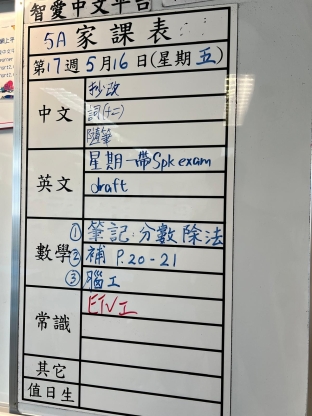 智愛中文平台
5A 家課表
第17週5月16日(星期五)
中文 抄改
詞(十二)
隨筆
英文 星期一帶Spk exam
draft
數學 ① 筆記:分數除法
② 補 P.20-21
③ 腦工
常識 ETV工
其它
值日生